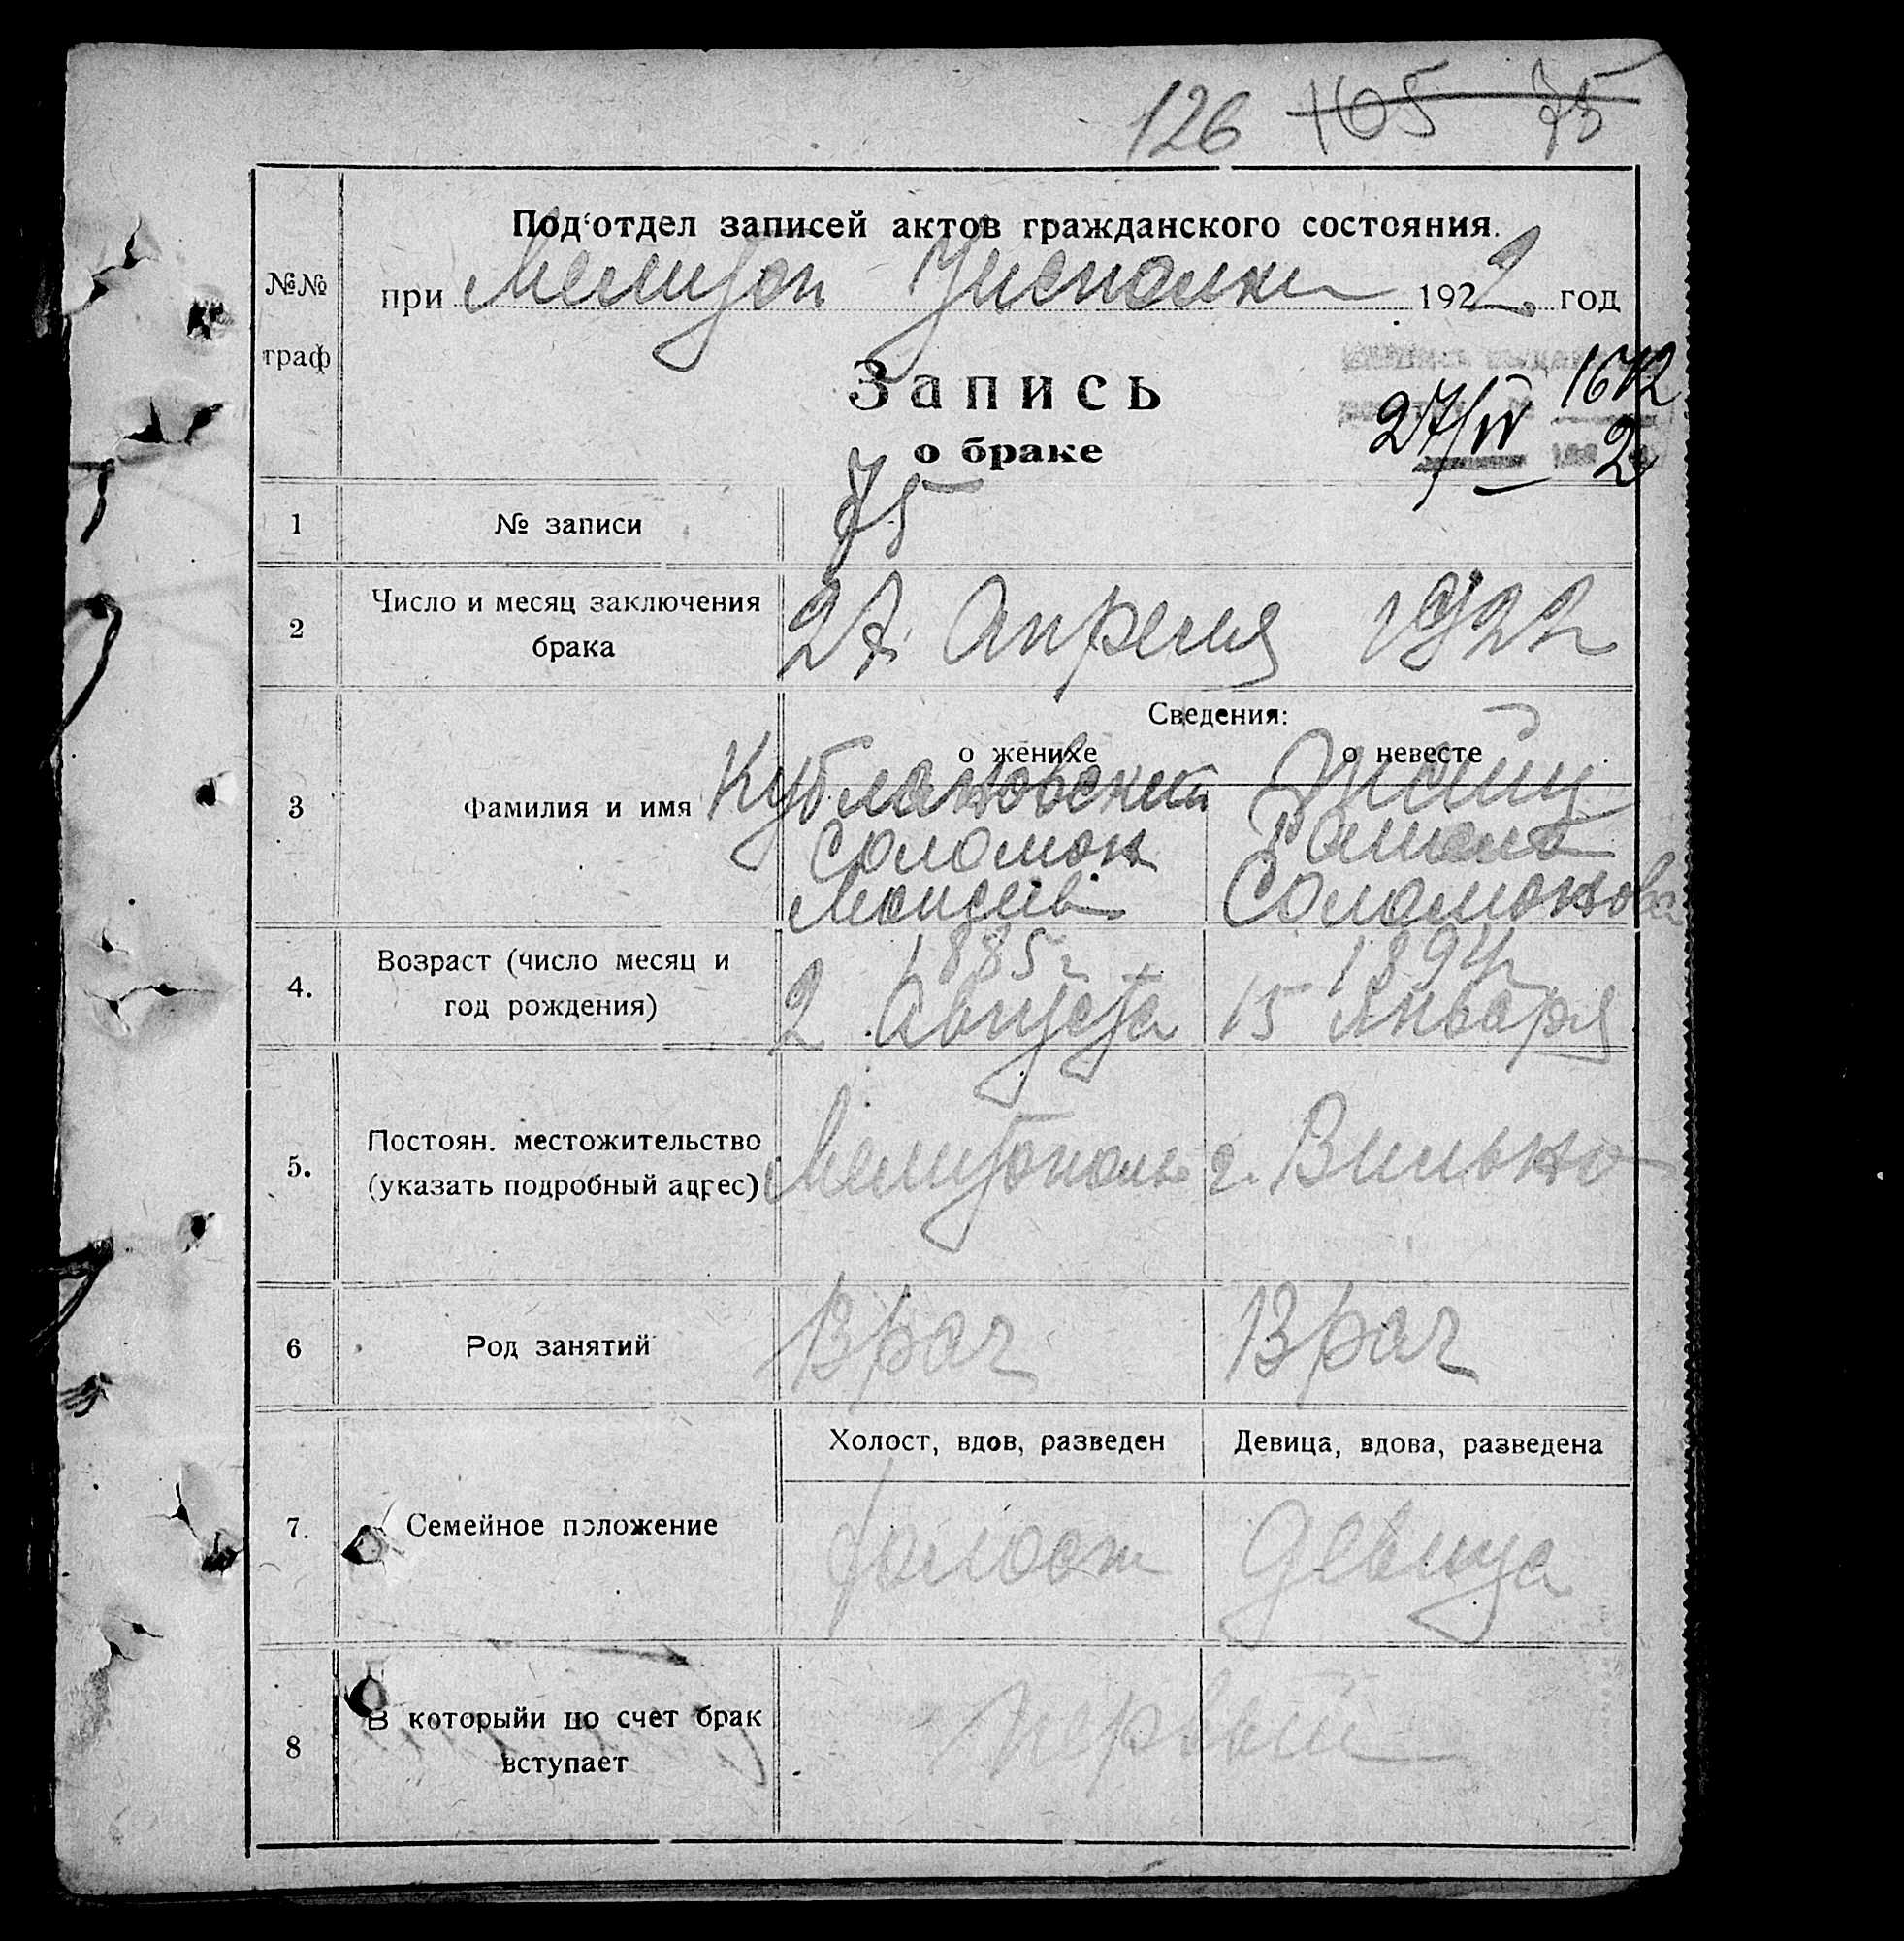 126 165 75
Под‘отдел записей актов гражданского состояния.
№№ при Мелитоп Уисполком 1922. год
граф
Запись
27/IV 1612
о браке 2
1 № записи 75
2 Число и месяц заключения брака 27 Апреля 1922
Сведения:
о женихе о невесте
3 Фамилия и имя Кублановский
Соломон
Моисеев Соломонова
4. Возраст (число месяц и год рождения) 1885 г 2 Августа 1894 г 15 Января
5. Постоян. местожительство (указать подробный адрес) Мелитополь г. Вильно
6 Род занятий Врач Врач
Холост, вдов, разведен Девица, вдова, разведена
7. Семейное положение Холост Девица
8 В которыйи по счет брак вступает первый